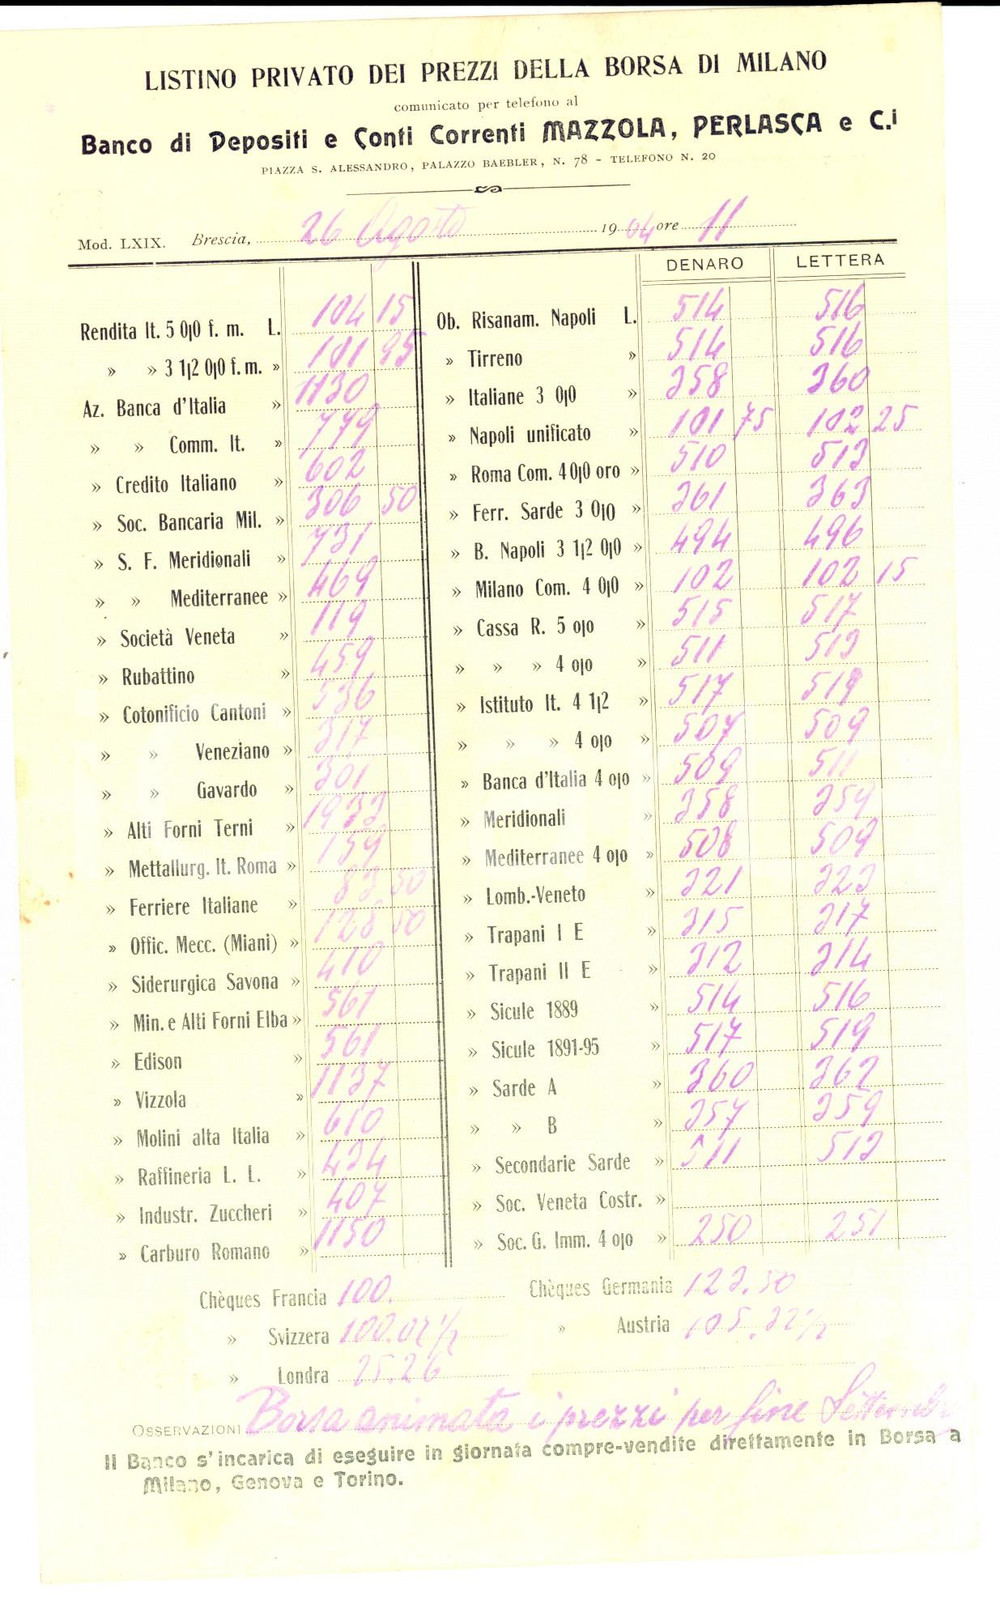 LISTINO PRIVATO DEI PREZZI DELLA BORSA DI MILANO
comunicato per telefono al
Banco di Depositi e Conti Correnti MAZZOLA, PERLASCA e C.i
PIAZZA S. ALESSANDRO, PALAZZO BAEBLER, N. 78 - TELEFONO N. 20
Mod. LXIX. Brescia, 26 Agosto 1904 ore 11
Rendita It. 5 0|0 f. m. L. 104 15
» » 3 1|2 0|0 f. m. » 101 95
Az. Banca d'Italia » 1130
» » Comm. It. » 779
» Credito Italiano » 602
» Soc. Bancaria Mil. » 306 50
» S. F. Meridionali » 731
» » Mediterranee » 469
» Società Veneta » 119
» Rubattino » 459
» Cotonificio Cantoni » 536
» » Veneziano » 317
» » Gavardo » 301
» Alti Forni Terni » 1933
» Mettallurg. It. Roma » 159
» Ferriere Italiane » 83 50
» Offic. Mecc. (Miani) » 128 50
» Siderurgica Savona » 410
» Min. e Alti Forni Elba » 561
» Edison » 561
» Vizzola » 1137
» Molini alta Italia » 610
» Raffineria L. L. » 434
» Industr. Zuccheri » 407
» Carburo Romano » 1150
DENARO LETTERA
Ob. Risanam. Napoli L. 514 516
» Tirreno » 514 516
» Italiane 3 0|0 » 358 360
» Napoli unificato » 101 75 102 25
» Roma Com. 4 0|0 oro » 510 513
» Ferr. Sarde 3 0|0 » 361 363
» B. Napoli 3 1|2 0|0 » 494 496
» Milano Com. 4 0|0 » 102 102 15
» Cassa R. 5 o|o » 515 517
» » » 4 o|o » 511 513
» Istituto It. 4 1|2 » 517 519
» » » 4 o|o » 507 509
» Banca d'Italia 4 o|o » 509 511
» Meridionali » 358 359
» Mediterranee 4 o|o » 508 509
» Lomb.-Veneto » 321 323
» Trapani I E » 315 317
» Trapani II E » 312 314
» Sicule 1889 » 514 516
» Sicule 1891-95 » 517 519
» Sarde A » 360 362
» » B » 357 359
» Secondarie Sarde » 511 513
» Soc. Veneta Costr. »
» Soc. G. Imm. 4 o|o » 250 251
Chèques Francia 100. Chèques Germania 123.50
» Svizzera 100.02 1/2 » Austria 105.22 1/2
» Londra 25.26
OSSERVAZIONI Borsa animata i prezzi per fine Settembre
Il Banco s'incarica di eseguire in giornata compre-vendite direttamente in Borsa a
Milano, Genova e Torino.